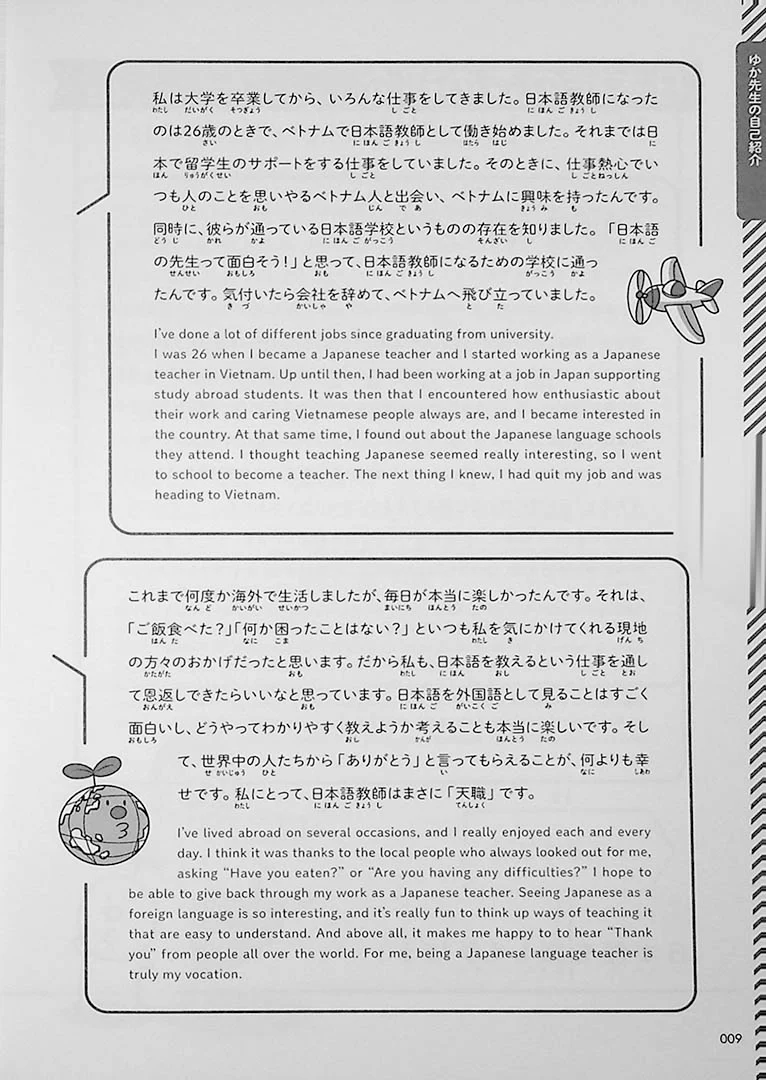 ゆか先生の自己紹介
私は大学を卒業してから、いろんな仕事をしてきました。日本語教師になった
わたし だいがく そつぎょう しごと にほんごきょうし
のは26歳のときで、ベトナムで日本語教師として働き始めました。それまでは日
さい にほんごきょうし はたら はじ に
本で留学生のサポートをする仕事をしていました。そのときに、仕事熱心でい
ほん りゅうがくせい しごと しごとねっしん
つも人のことを思いやるベトナム人と出会い、ベトナムに興味を持ったんです。
ひと おも じん であ きょうみ も
同時に、彼らが通っている日本語学校というものの存在を知りました。「日本語
どうじ かれ かよ にほんごがっこう そんざい し にほんご
の先生って面白そう!」と思って、日本語教師になるための学校に通っ
せんせい おもしろ おも にほんごきょうし がっこう かよ
たんです。気付いたら会社を辞めて、ベトナムへ飛び立っていました。
きづ かいしゃ や と た
I've done a lot of different jobs since graduating from university.
I was 26 when I became a Japanese teacher and I started working as a Japanese
teacher in Vietnam. Up until then, I had been working at a job in Japan supporting
study abroad students. It was then that I encountered how enthusiastic about
their work and caring Vietnamese people always are, and I became interested in
the country. At that same time, I found out about the Japanese language schools
they attend. I thought teaching Japanese seemed really interesting, so I went
to school to become a teacher. The next thing I knew, I had quit my job and was
heading to Vietnam.
これまで何度か海外で生活しましたが、毎日が本当に楽しかったんです。それは、
なんど かいがい せいかつ まいにち ほんとう たの
「ご飯食べた?」「何か困ったことはない?」といつも私を気にかけてくれる現地
はんた なに こま わたし き げんち
の方々のおかげだったと思います。だから私も、日本語を教えるという仕事を通し
かたがた おも わたし にほんご おし しごと とお
て恩返しできたらいいなと思っています。日本語を外国語として見ることはすごく
おんがえ おも にほんご がいこくご み
面白いし、どうやってわかりやすく教えようか考えることも本当に楽しいです。そし
おもしろ おし かんが ほんとう たの
て、世界中の人たちから「ありがとう」と言ってもらえることが、何よりも幸
せかいじゅう ひと い なに しあわ
せです。私にとって、日本語教師はまさに「天職」です。
わたし にほんごきょうし てんしょく
I've lived abroad on several occasions, and I really enjoyed each and every
day. I think it was thanks to the local people who always looked out for me,
asking “Have you eaten?” or “Are you having any difficulties?” I hope to
be able to give back through my work as a Japanese teacher. Seeing Japanese as a
foreign language is so interesting, and it's really fun to think up ways of teaching it
that are easy to understand. And above all, it makes me happy to to hear “Thank
you” from people all over the world. For me, being a Japanese language teacher is
truly my vocation.
009